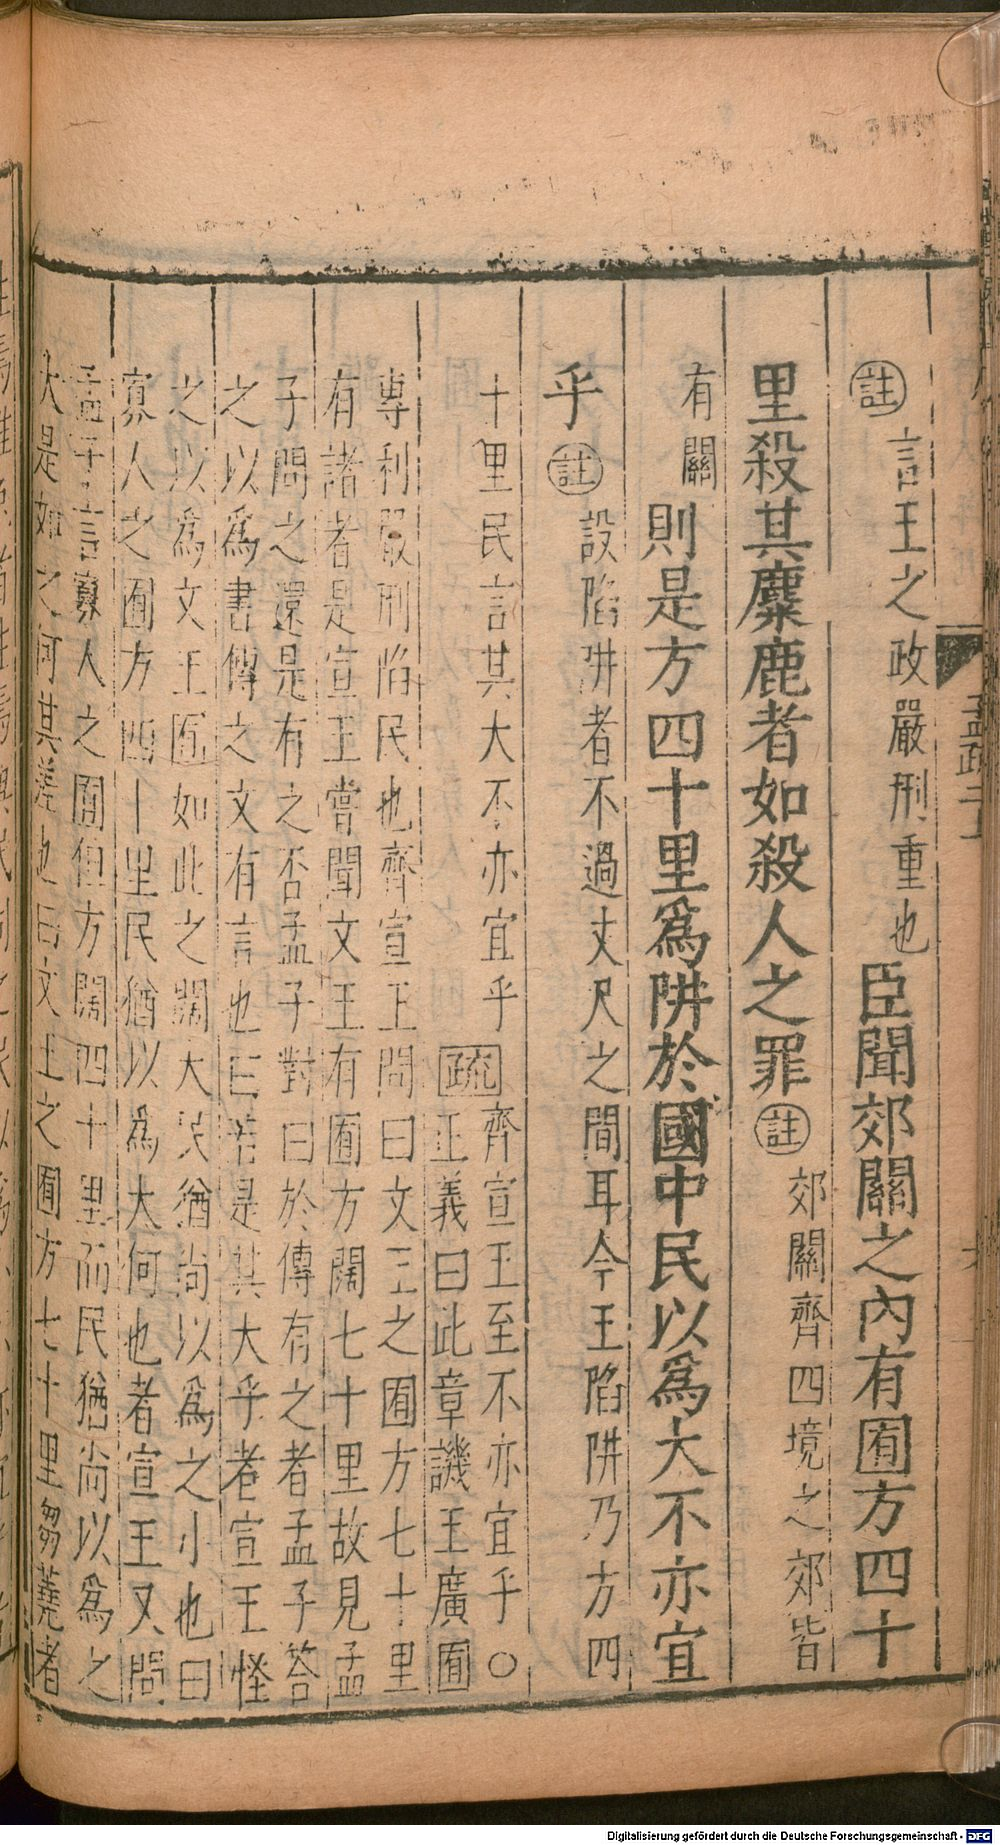 註言王之政嚴刑重也臣聞郊關之內有囿方四十
里殺其麋鹿者如殺人之罪註郊關齊四境之郊皆
有關則是方四十里爲阱於國中民以爲大不亦宜
乎註設陷阱者不過丈尺之間耳今王陷阱乃方四
十里民言其大不亦宜乎疏齊宣王至不亦宜乎〇
正義曰此章譏王廣囿
專利嚴刑陷民也齊宣王問曰文王之囿方七十里
有諸者是宣王嘗聞文王有囿方闊七十里故見孟
子問之還是有之否孟子對曰於傳有之者孟子荅
之以爲書傳之文有言也曰若是其大乎者宣王怪
之以爲文王囿如此之闊大民猶尚以爲之小也曰
寡人之囿方四十里民猶以爲大何也者宣王又問
孟子言寡人之囿但方闊四十里而民猶尚以爲之
大是如之何其差也曰文王之囿方七十里芻蕘者
孟疏二上
Digitalisierung gefördert durch die Deutsche Forschungsgemeinschaft - DFG